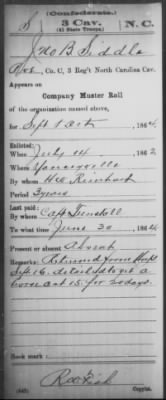 (Confederate.)
S 3 Cav. N.C.
(41 State Troops)
Jno B. Siddle
Pvt, Co. C, 3 Reg't North Carolina Cav.
Appears on
Company Muster Roll
of the organization named above,
for Sept & Oct, 1864
Enlisted:
When July 14, 1862
Where Yanceyville
By whom
Period 3 years
Last paid:
By whom Capt
To what time June 30, 1864
Present or absent Absent
Remarks: Returned from Hosp
Sept 16. detailed to get a
horse Oct 15 for 20 days.
Book mark:
(642) Copyist.